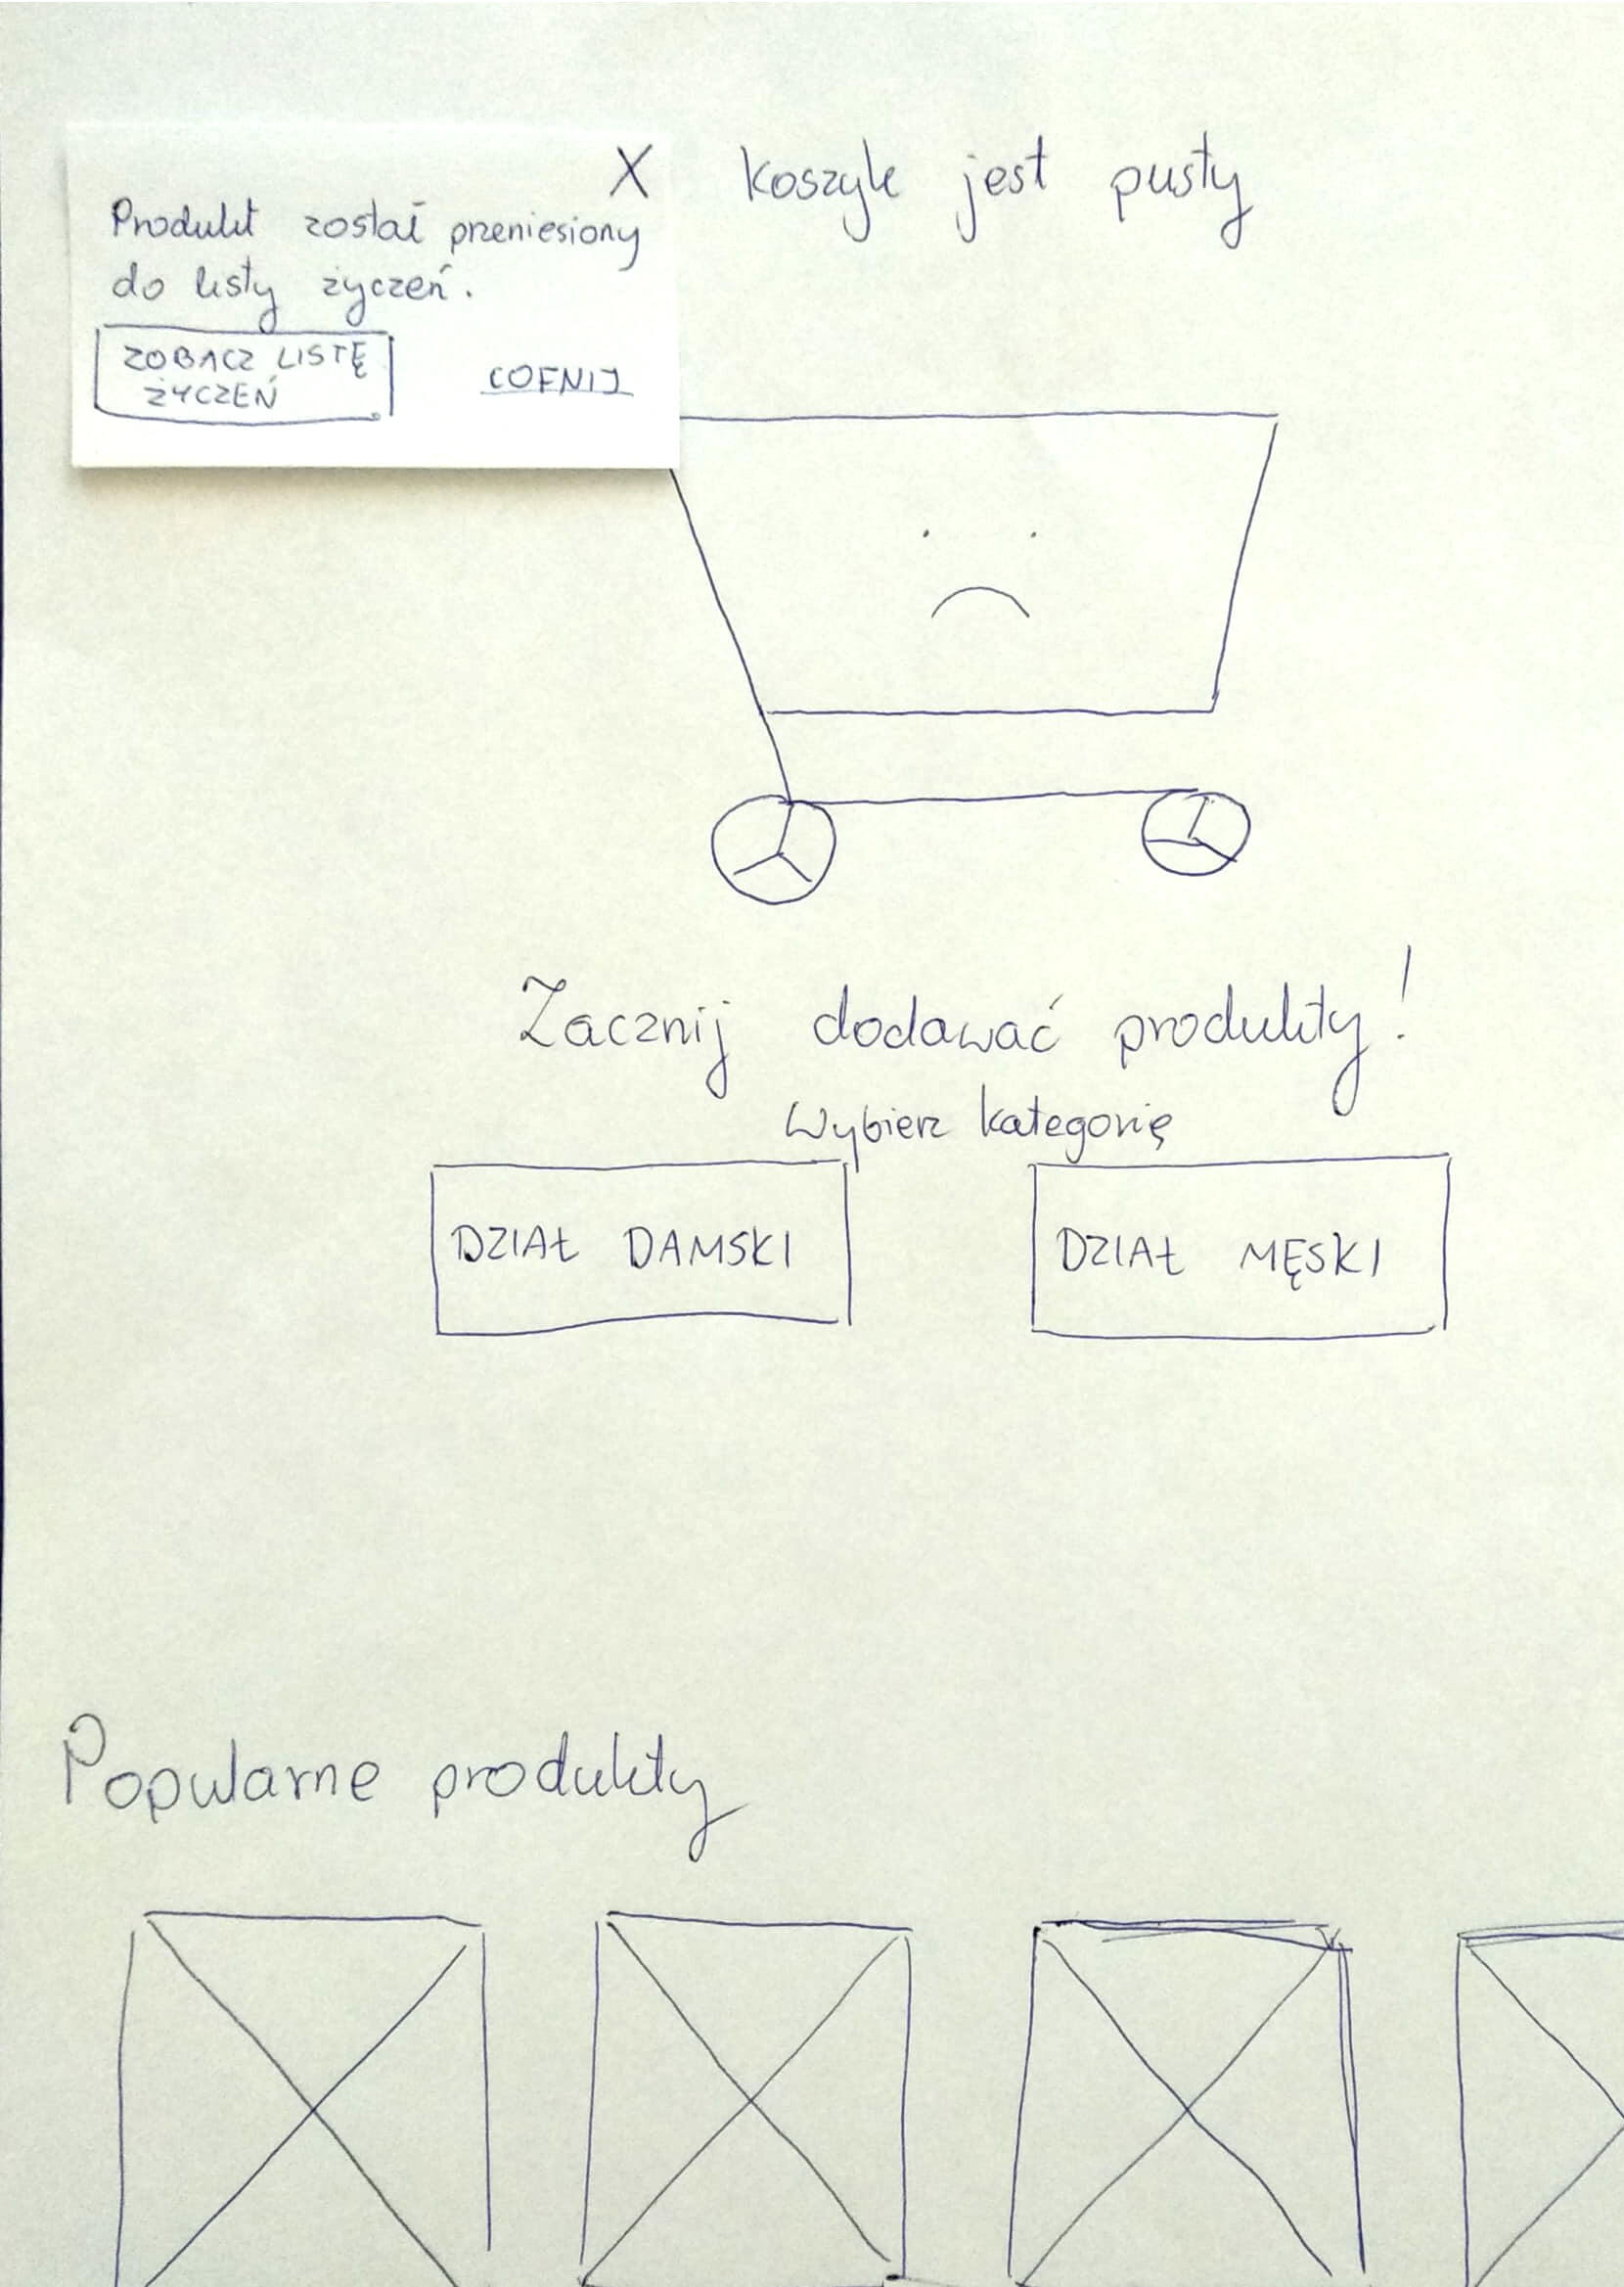 X
Produkt został przeniesiony
do listy życzeń.
ZOBACZ LISTĘ
ŻYCZEŃ
COFNIJ
koszyk jest pusty
Zacznij dodawać produkty!
Wybierz kategorię
DZIAŁ DAMSKI
DZIAŁ MĘSKI
Popularne produkty